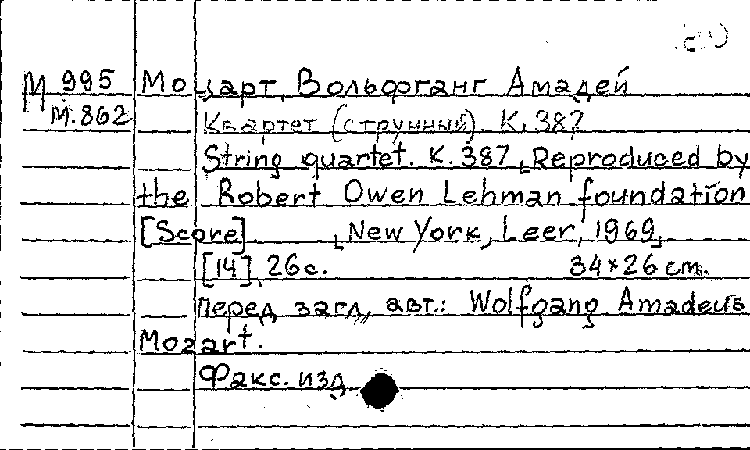 М 995 Моцарт, Вольфганг Амадей
М.862 Квартет (струнный). К. 387
String quartet. K. 387 Reproduced by
the Robert Owen Lehman foundation
[Score] New York, Leer, 1969
[14], 26 с. 34×26 cm.
перед загл. авт.: Wolfgang Amadeus
Mozart.
Факс. изд.